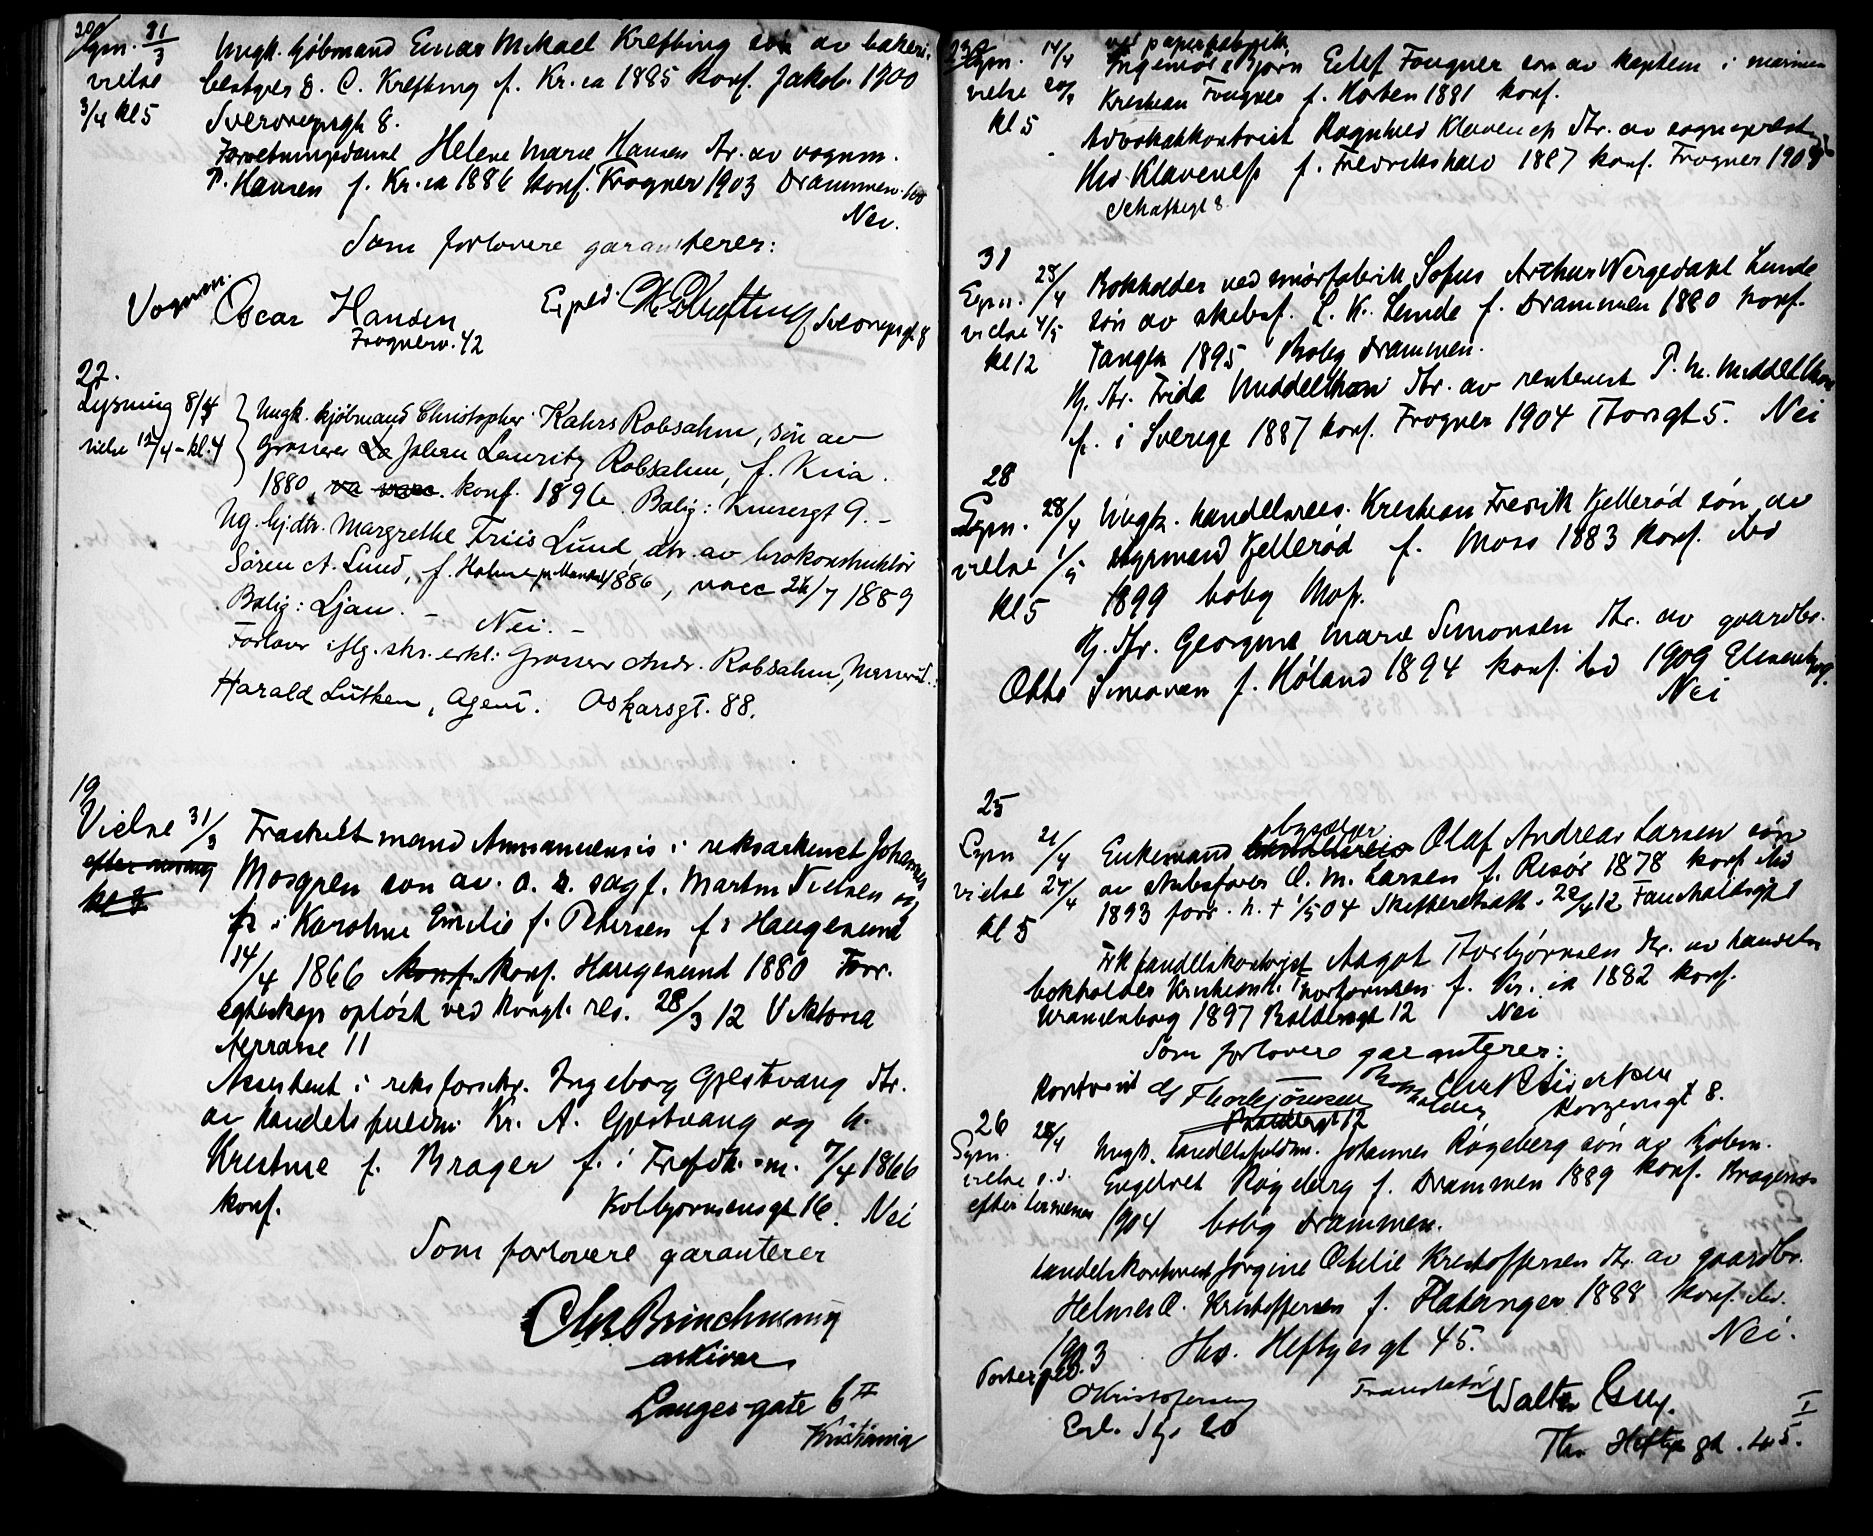 20
Lysn. 31/3
vielse
3/4 kl 5
Ungk. kjøbmand Einar Mikael Krefting søn av bakeri-
bestyrer D. C. Krefting f. Kr.ia 1885 konf. Jakob. 1900
Sverdrupsgt 8.
Forretningsdame Helene Marie Hansen dtr. av vognm.
P. Hansen f. Kr.ia 1886 konf. Frogner 1903 Drammensv.
Nei.
Som forlovere garanterer:
Vognm. Oscar Hansen
Frognerv. 42
Exped. Krefting Sverdrupsgt 8
22.
Lysning 8/4
vielse 12/4 - kl. 4
Ungk. kjøbmand Christopher Kahrs Robsahm, søn av
Grosserer Johan Lauritz Robsahm, f. Kria.
1880, konf. 1896. Bolig: Krusesgt 9. -
Ug. hj.dtr. Margrethe Friis Lund, dtr. av brokonstruktør
Sören A. Lund, f. 1886, vacc 26/7 1889
Bolig: Ljan. - Nei. -
Forlover iflg. skr. erkl: Grosserer Andr. Robsahm,
Harald Lütken, Agent. Oskarsgt. 88.
19
Vielse 31/3
efter
kl
Fraskilt mand Amanuensis i riksarkivet Johannes
Mosgren søn av o. r. sagf. Martin Nielsen og
h. Karoline Emilie f. Petersen f. i Haugesund
14/4 1866 konf. Haugesund 1880 Forr.
egteskap opløst ved kongl. res. 28/3 12 Viktoria
terrasse 11
Assistent i riksforskr. Ingeborg Gjestvang dtr.
av handelsfuldm. Kr. A. Gjestvang og h.
Kristine f. Brager f. i 7/4 1866
konf. Kolbjørnsensgt 16. Nei
Som forlovere garanterer
Chr Brinchmann
arkivar
Langes gate 6 II
Kristiania
Lysn. 14/4
vielse 20/4
kl 5
ved papirfabrik
Ingeniør Bjørn Eilef Fougner søn av kaptein i marinen
Kristian Fougner f. Horten 1881 konf.
Advokatkontorist Ragnhild Klaveness dtr. av sogneprest
Klaveness f. Fredrikshald 1887 konf. Frogner 1903
Schaftesgt 8
31
Lysn. 25/4
vielse 4/5
kl 12
Bokholder ved Sofus Arthur Wergedahl Lunde
søn av skibsf. L. K. Lunde f. Drammen 1880 konf.
Tangen 1895 Bolig Drammen.
Hj. dtr. Frida Middelthon dtr. av rentenist P. M. Middelthon
f. i Sverige 1887 konf. Frogner 1904 Thorsgt 5. Nei
28
Lysn. 28/4
vielse 1/5
kl 5
Ungk. handelsreis. Kristian Fredrik Kjellerød søn av
styrmand Kjellerød f. Moss 1883 konf. ibid
1899 bolig Moss.
Hj. dtr. Georgine Marie Simonsen dtr. av gaardbr.
Otto Simonsen f. Høland 1894 konf. ibd 1909
Nei
25
Lysn 21/4
vielse 24/4
kl 5
Enkemand Olaf Andreas Larsen søn
av skibsfører O. M. Larsen f. Risør 1878 konf. ibid
1893 forr. h. † 1/5 04 Skifteretsatt. 20/4 12
Frk handelskontorist Aagot Thorbjørnsen dtr. av handels
bokholder Kristian Thorbjørnsen f. Kr.ia 1882 konf.
Uranienborg 1897 Baldersgt 12 Nei
Som forlovere garanterer:
Kontorist Thorbjörnsen
Baldersgt 12
Bokholder
8.
26
Lysn. 28/4
vielse s.d.
efter
Ungk. handelsfuldm. Johannes Røgeberg søn av kjøbm.
Engebret Røgeberg f. Drammen 1889 konf. Bragernes
1904 bolig Drammen.
Handelskontorist Jørgine Otilie Kristoffersen dtr. av gaardbr.
Helmer O. Kristoffersen f. Flatanger 1888 konf. ibd.
1903 Ths. Heftyesgt 45. Nei.
Postexped. O Kristofersen
20
Translatør Walter
Ths Heftyes gd. 45. I